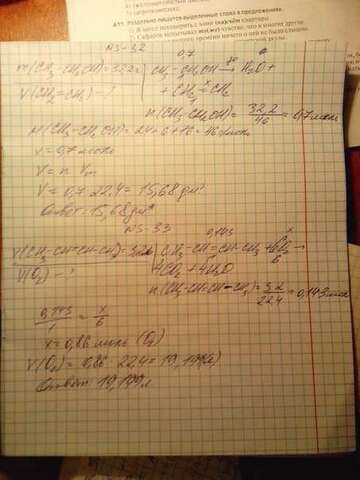 A11. Раздельно пишутся выделенные слова в предложениях.
N5-32
m(CH₃-CH₂OH)=32,2г
V(CH₂=CH₂) - ?
0,7
CH₃-CH₂OH → H₂O +
+ CH₂=CH₂
n(CH₃-CH₂OH) = 32,2/46 = 0,7 моль
M(CH₃-CH₂OH) = 24+6+16=46
ν=0,7 моль
V = n · Vm
V = 0,7 · 22,4 = 15,68 дм³
Ответ: 15,68 дм³
N5-33
0,143
V(CH₃-CH=CH-CH₃)=3,2л
V(O₂) - ?
CH₃-CH=CH-CH₃ + 6O₂ →
4CO₂ + 4H₂O
n(CH₃-CH=CH-CH₃) = 3,2/22,4 = 0,143 моль
0,143/1 = x/6
x = 0,86 моль (O₂)
V(O₂) = 0,86 · 22,4 = 19,199(л)
Ответ: 19,199 л